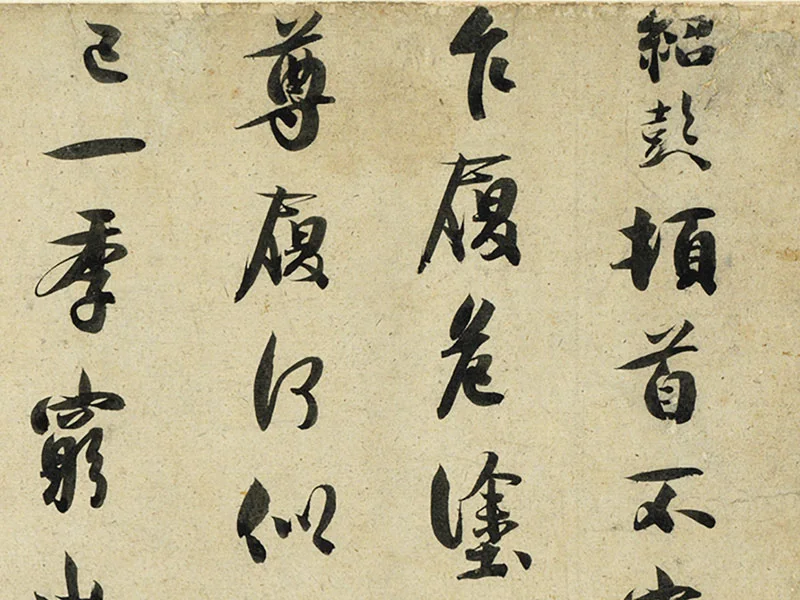 紹彭頓首不
乍履危塗
尊履何似
已一季窮